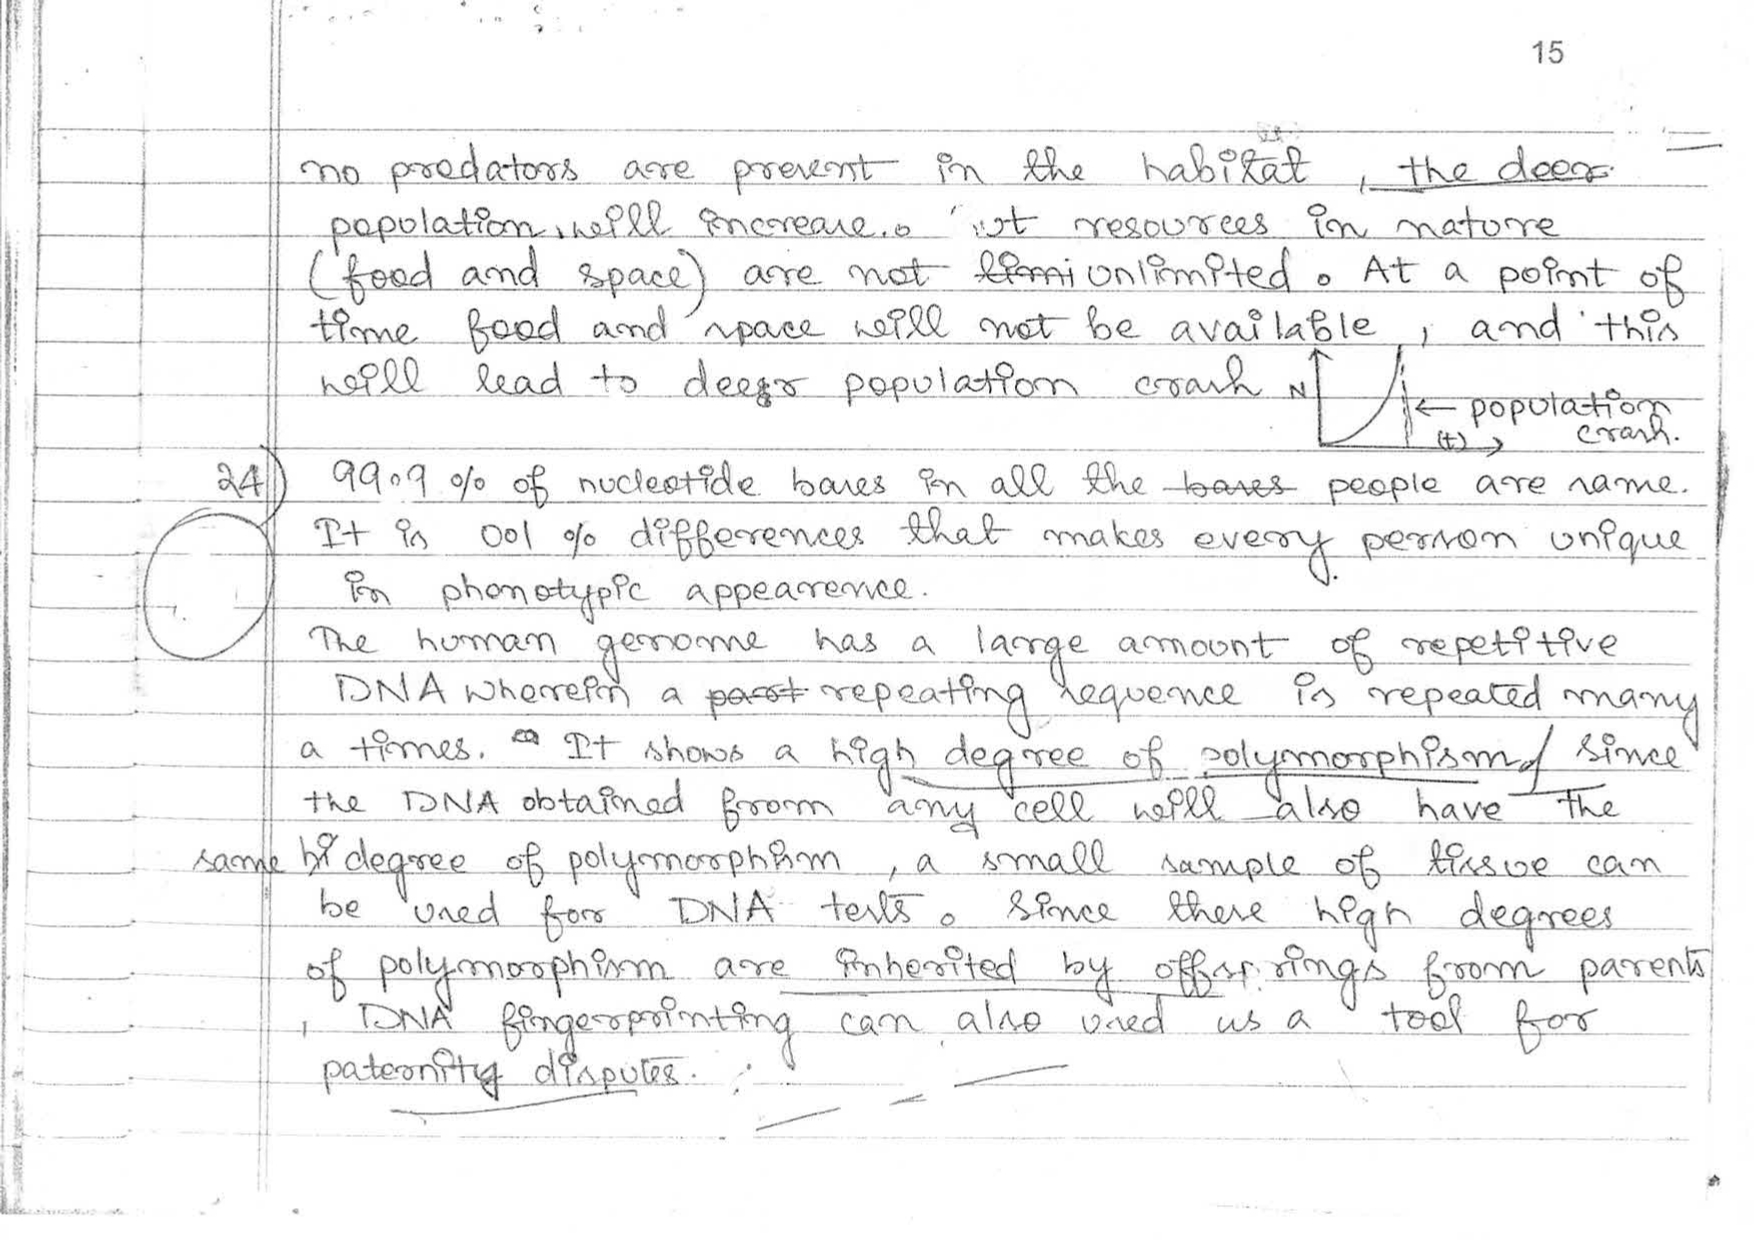 15
no predators are present in the habitat, the deer
population will increase. ut resources in nature
(food and space) are not limi unlimited. At a point of
time food and space will not be available, and this
will lead to deer population crash
N
← population
crash.
(t)
24) 99.9 % of nucleotide bases in all the bases people are same.
It is 0.1 % differences that makes every person unique
in phonotypic appearence.
The human genome has a large amount of repetitive
DNA wherein a part repeating sequence is repeated many
a times. It shows a high degree of polymorphism, since
the DNA obtained from any cell will also have the
same degree of polymorphism, a small sample of tissue can
be used for DNA tests. Since these high degrees
of polymorphism are inherited by offsprings from parents
, DNA fingerprinting can also used us a tool for
paternity disputes.